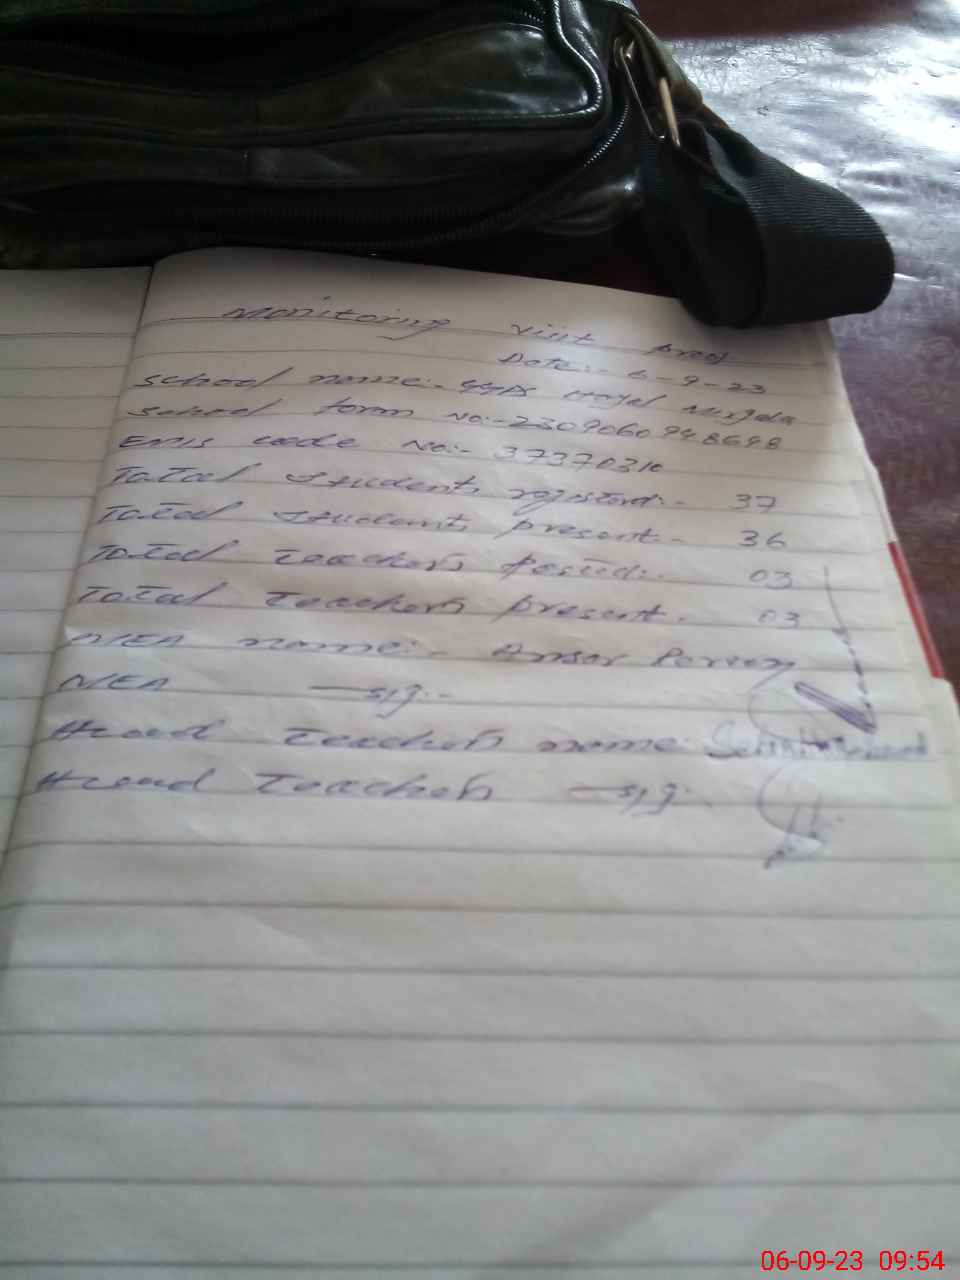 Monitoring visit proof
Date:- 6-9-23
School name:- GGPS
School form No:- 2309060948698
EMIS code No:- 37370310
Total students registerd:- 37
Total students present:- 36
Total teachers posted:- 03
Total teachers present. 03
MEA name:- Ansar Perveen
MEA sig:-
Head teacher name:
Head teacher sig:
06-09-23 09:54